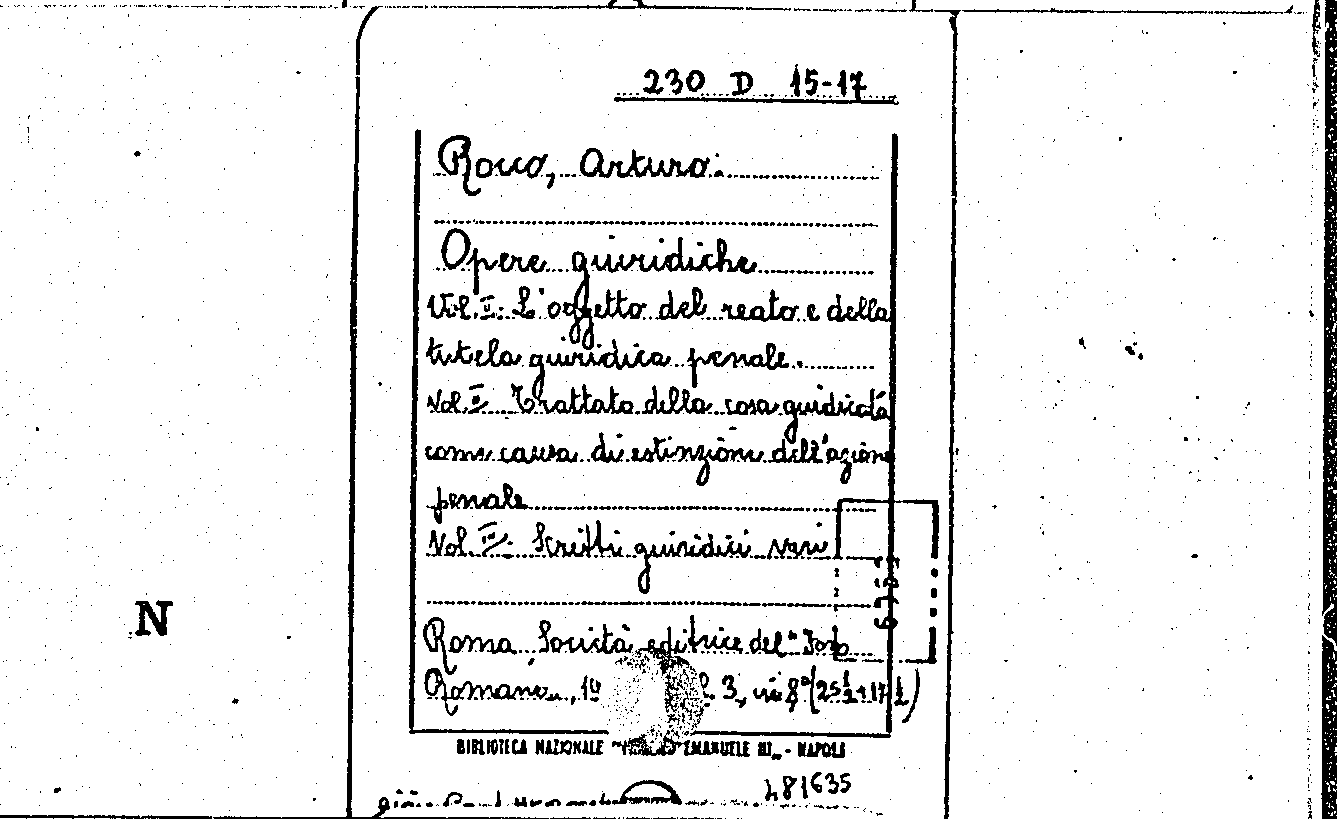 230 D 15-17
Rocco, Arturo.
Opere giuridiche
Vol. I: L'oggetto del reato e della
tutela giuridica penale.
Vol. II Trattato della cosa giudicata
come causa di estinzione dell'azione
penale
Vol. III. Scritti giuridici vari
N
Roma, Società editrice del "Foro
Romano", 19 3, in 8° (25½ × 17½)
BIBLIOTECA NAZIONALE EMANUELE III - NAPOLI
481635